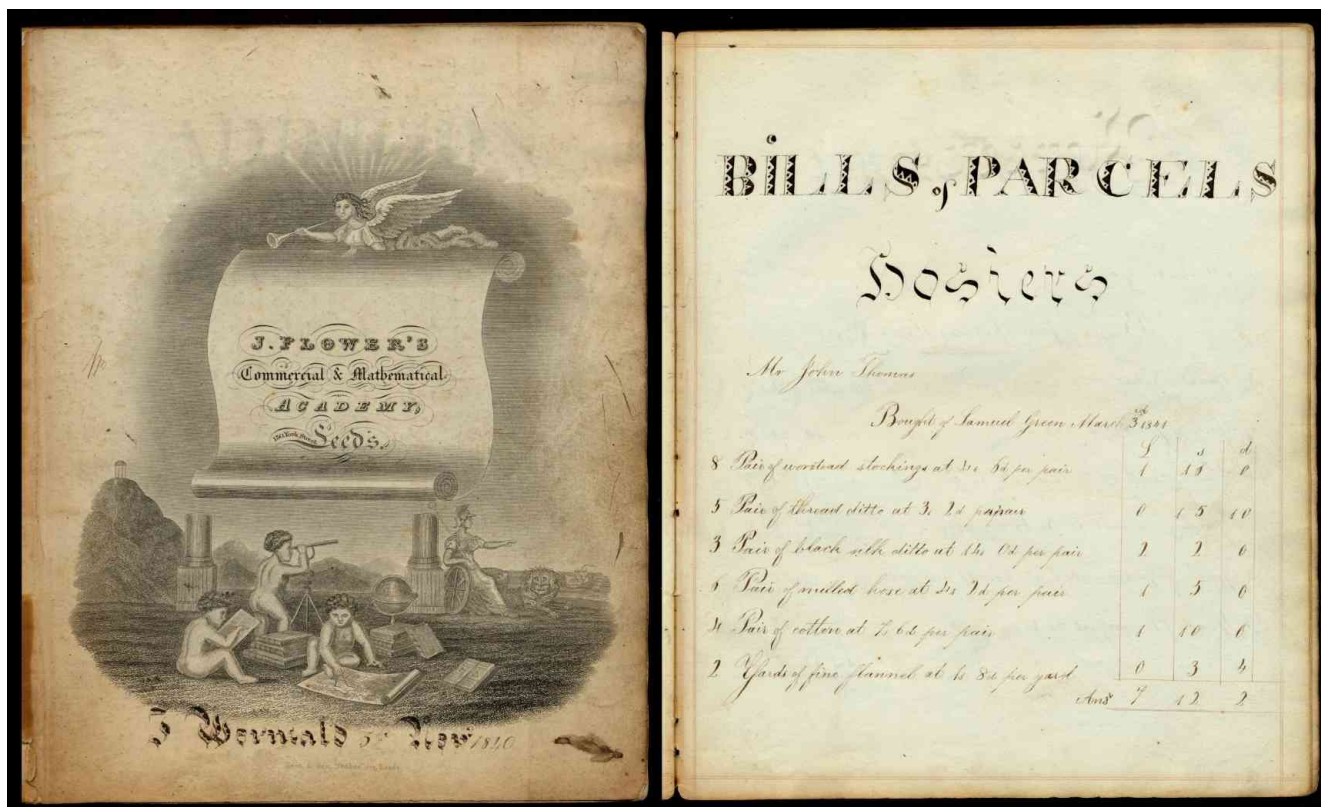 J. FLOWER'S
Commercial & Mathematical
ACADEMY,
York Street Leeds.
Wormald 5th Novr 1840
BILLS of PARCELS
Hosiers
Mr John Thomas
Bought of Samuel Green March 3rd 1841
£ s d
8 Pair of worstead stockings at 4s 6d per pair 1 16 0
5 Pair of thread ditto at 3s 2d per pair 0 15 10
3 Pair of black silk ditto at 14s 0d per pair 2 2 0
6 Pair of milled hose at 4s 2d per pair 1 5 0
4 Pair of cotton at 7s 6d per pair 1 10 0
2 Yards of fine flannel at 1s 8d per yard 0 3 4
Ansr 7 12 2